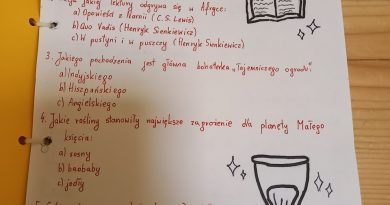 jakiej lektury odgrywa się w Afryce:
a) Opowieści z Narnii (C.S. Lewis)
b) Quo Vadis (Henryk Sienkiewicz)
c) W pustyni i w puszczy (Henryk Sienkiewicz)
3. Jakiego pochodzenia jest główna bohaterka „Tajemniczego ogrodu":
a) Indyjskiego
b) Hiszpańskiego
c) Angielskiego
4. Jakie rośliny stanowiły największe zagrożenie dla planety Małego
księcia:
a) sosny
b) baobaby
c) jodły